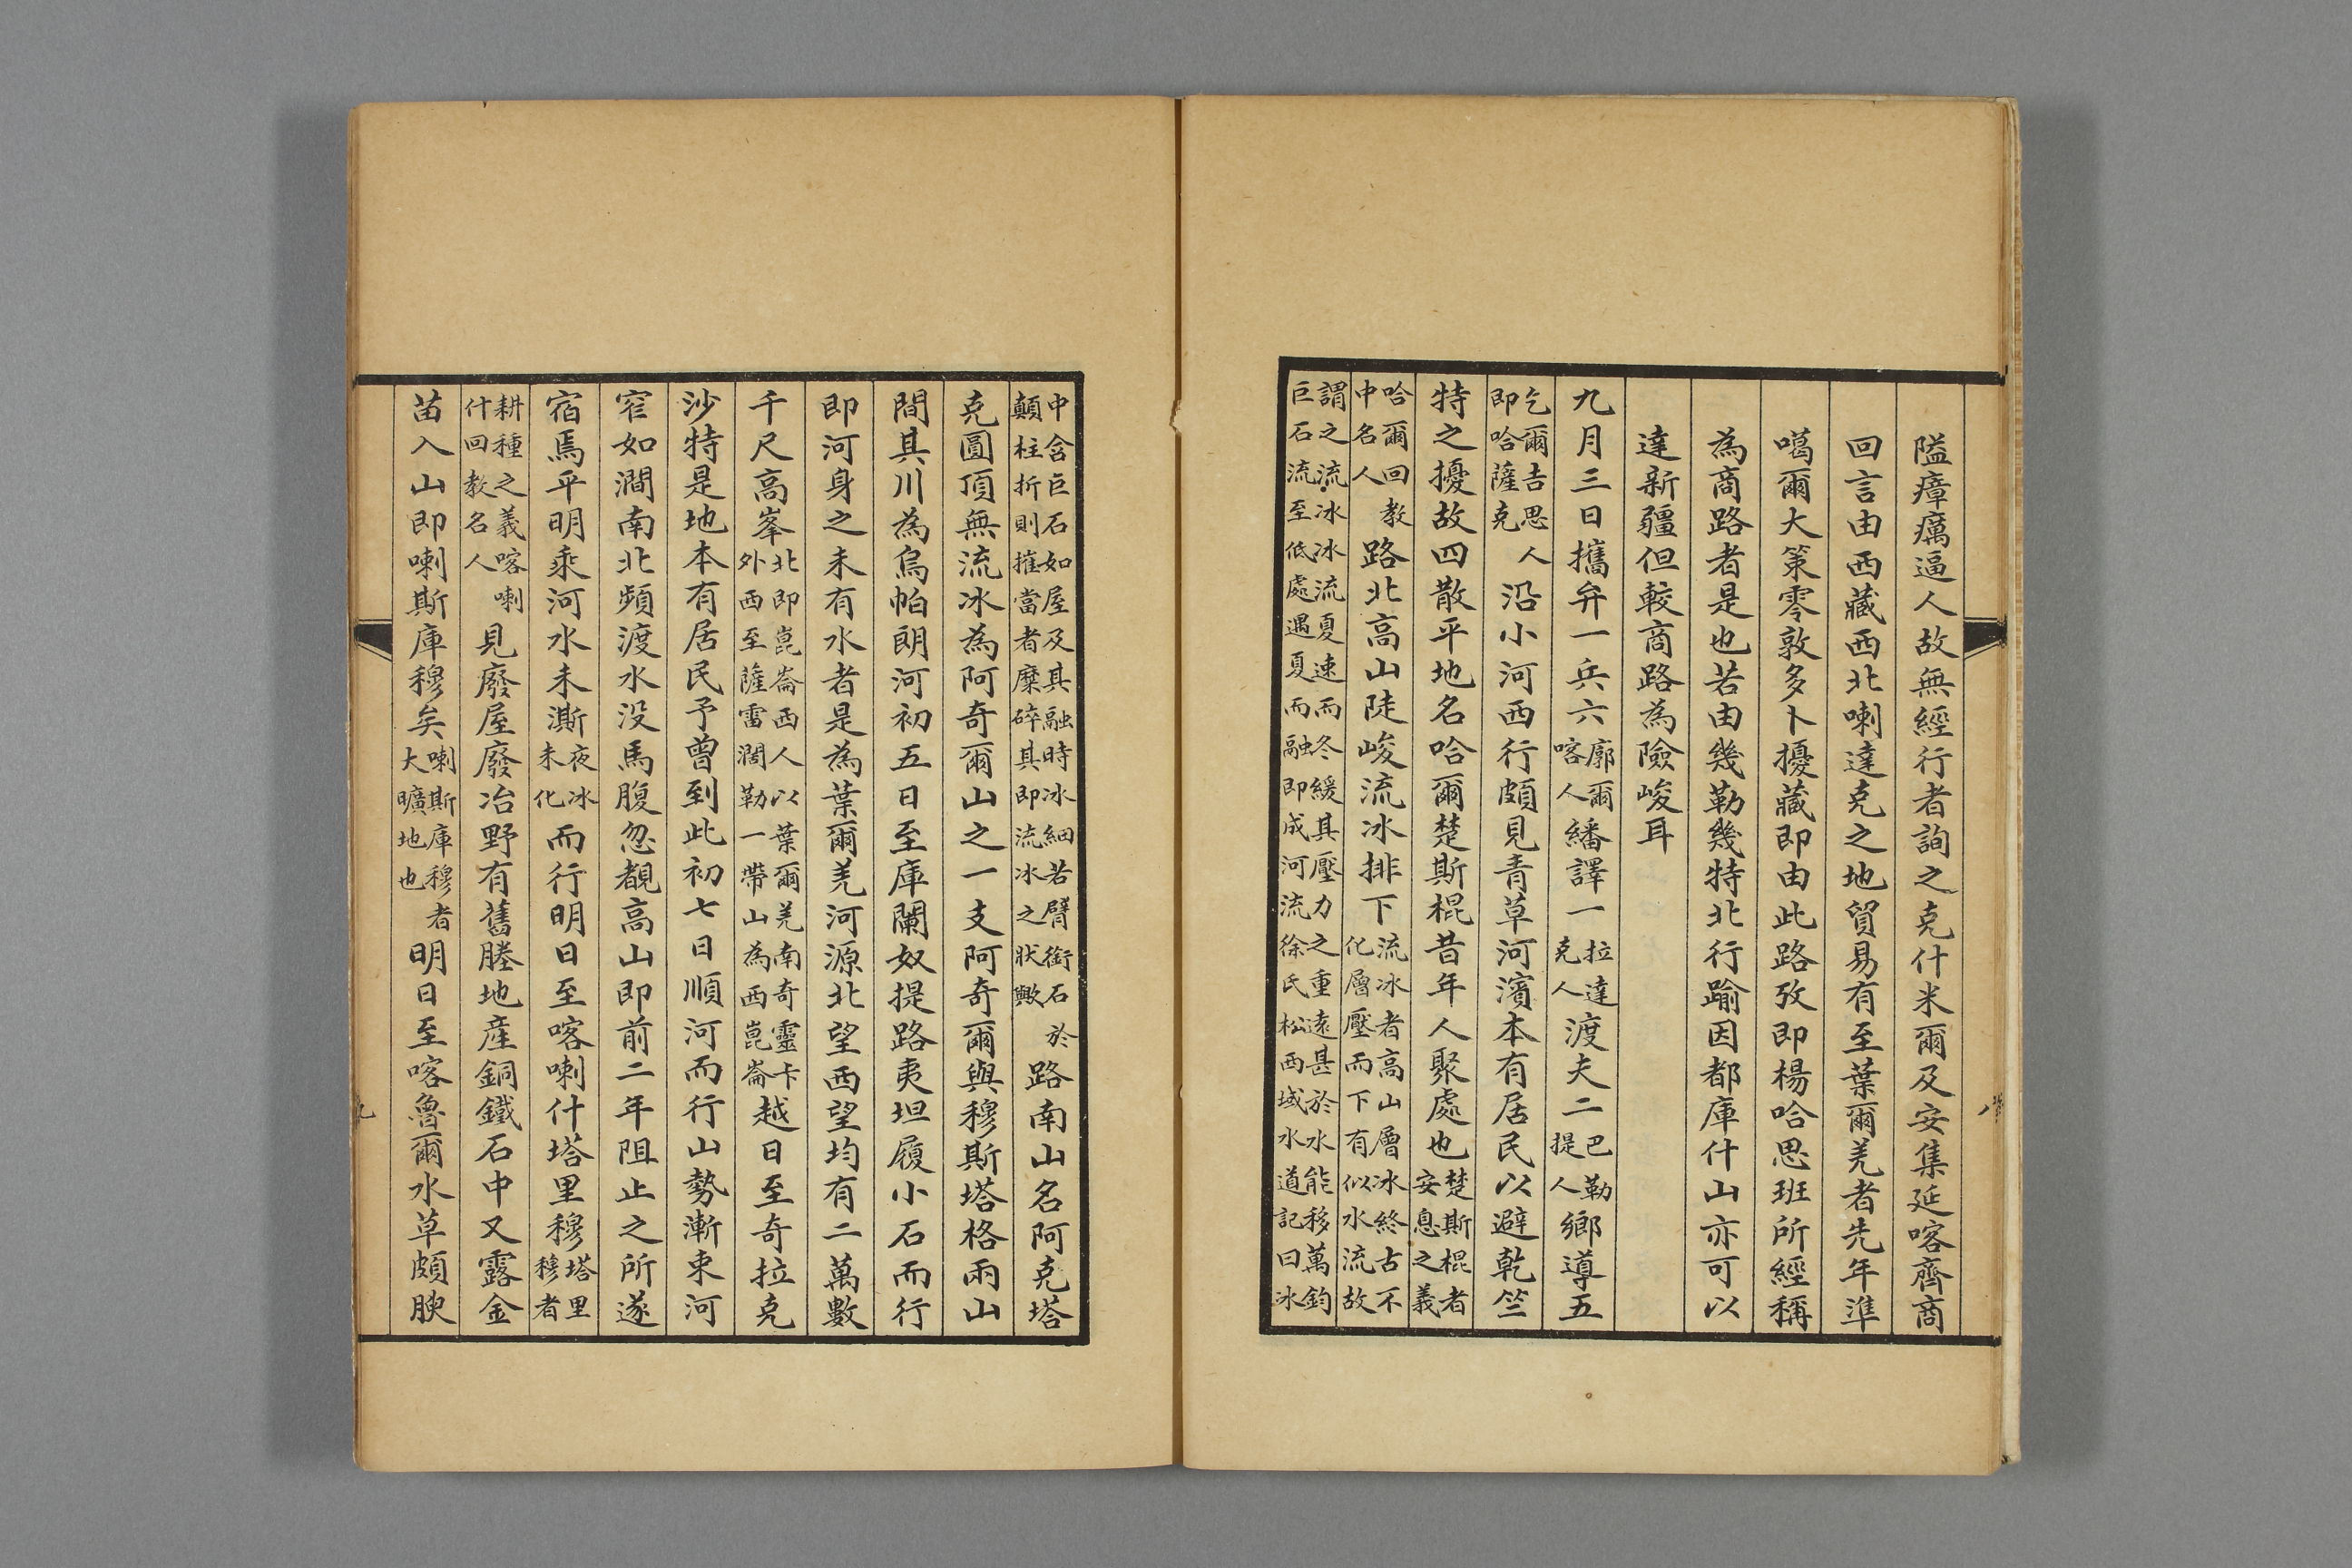 隘瘴癘逼人故無經行者詢之克什米爾及安集延喀齊商
回言由西藏西北喇達克之地貿易有至葉爾羌者先年準
噶爾大策零敦多卜擾藏即由此路攷即楊哈思班所經稱
為商路者是也若由幾勒幾特北行踰因都庫什山亦可以
達新疆但較商路為險峻耳
九月三日攜弁一兵六廓爾喀人繙譯一拉達克人渡夫二巴勒提人鄉導五
乞爾吉思人即哈薩克沿小河西行頗見青草河濱本有居民以避乾竺
特之擾故四散平地名哈爾楚斯棍昔年人聚處也楚斯棍者安息之義
哈爾回教中名人路北高山陡峻流冰排下流冰者高山層冰終古不化層壓而下有似水流故
謂之流冰冰流夏速而冬緩其壓力之重遠甚於水能移萬鈞巨石流至低處遇夏而融即成河流徐氏松西域水道記曰冰
中含巨石如屋及其融時冰細若臂銜石於顛柱折則摧當者糜碎其即流冰之狀歟路南山名阿克塔
克圓頂無流冰為阿奇爾山之一支阿奇爾與穆斯塔格兩山
間其川為烏帕朗河初五日至庫闌奴提路夷坦履小石而行
即河身之未有水者是為葉爾羌河源北望西望均有二萬數
千尺高峯北即崑崙西人以葉爾羌南奇靈卡外西至薩雷濶勒一帶山為西崑崙越日至奇拉克
沙特是地本有居民予曾到此初七日順河而行山勢漸束河
窄如澗南北頻渡水没馬腹忽覩高山即前二年阻止之所遂
宿焉平明乘河水未澌夜冰未化而行明日至喀喇什塔里穆塔里穆者
耕種之義喀喇什回教名人見廢屋廢冶野有舊塍地産銅鐵石中又露金
苗入山即喇斯庫穆矣喇斯庫穆者大曠地也明日至喀魯爾水草頗腴